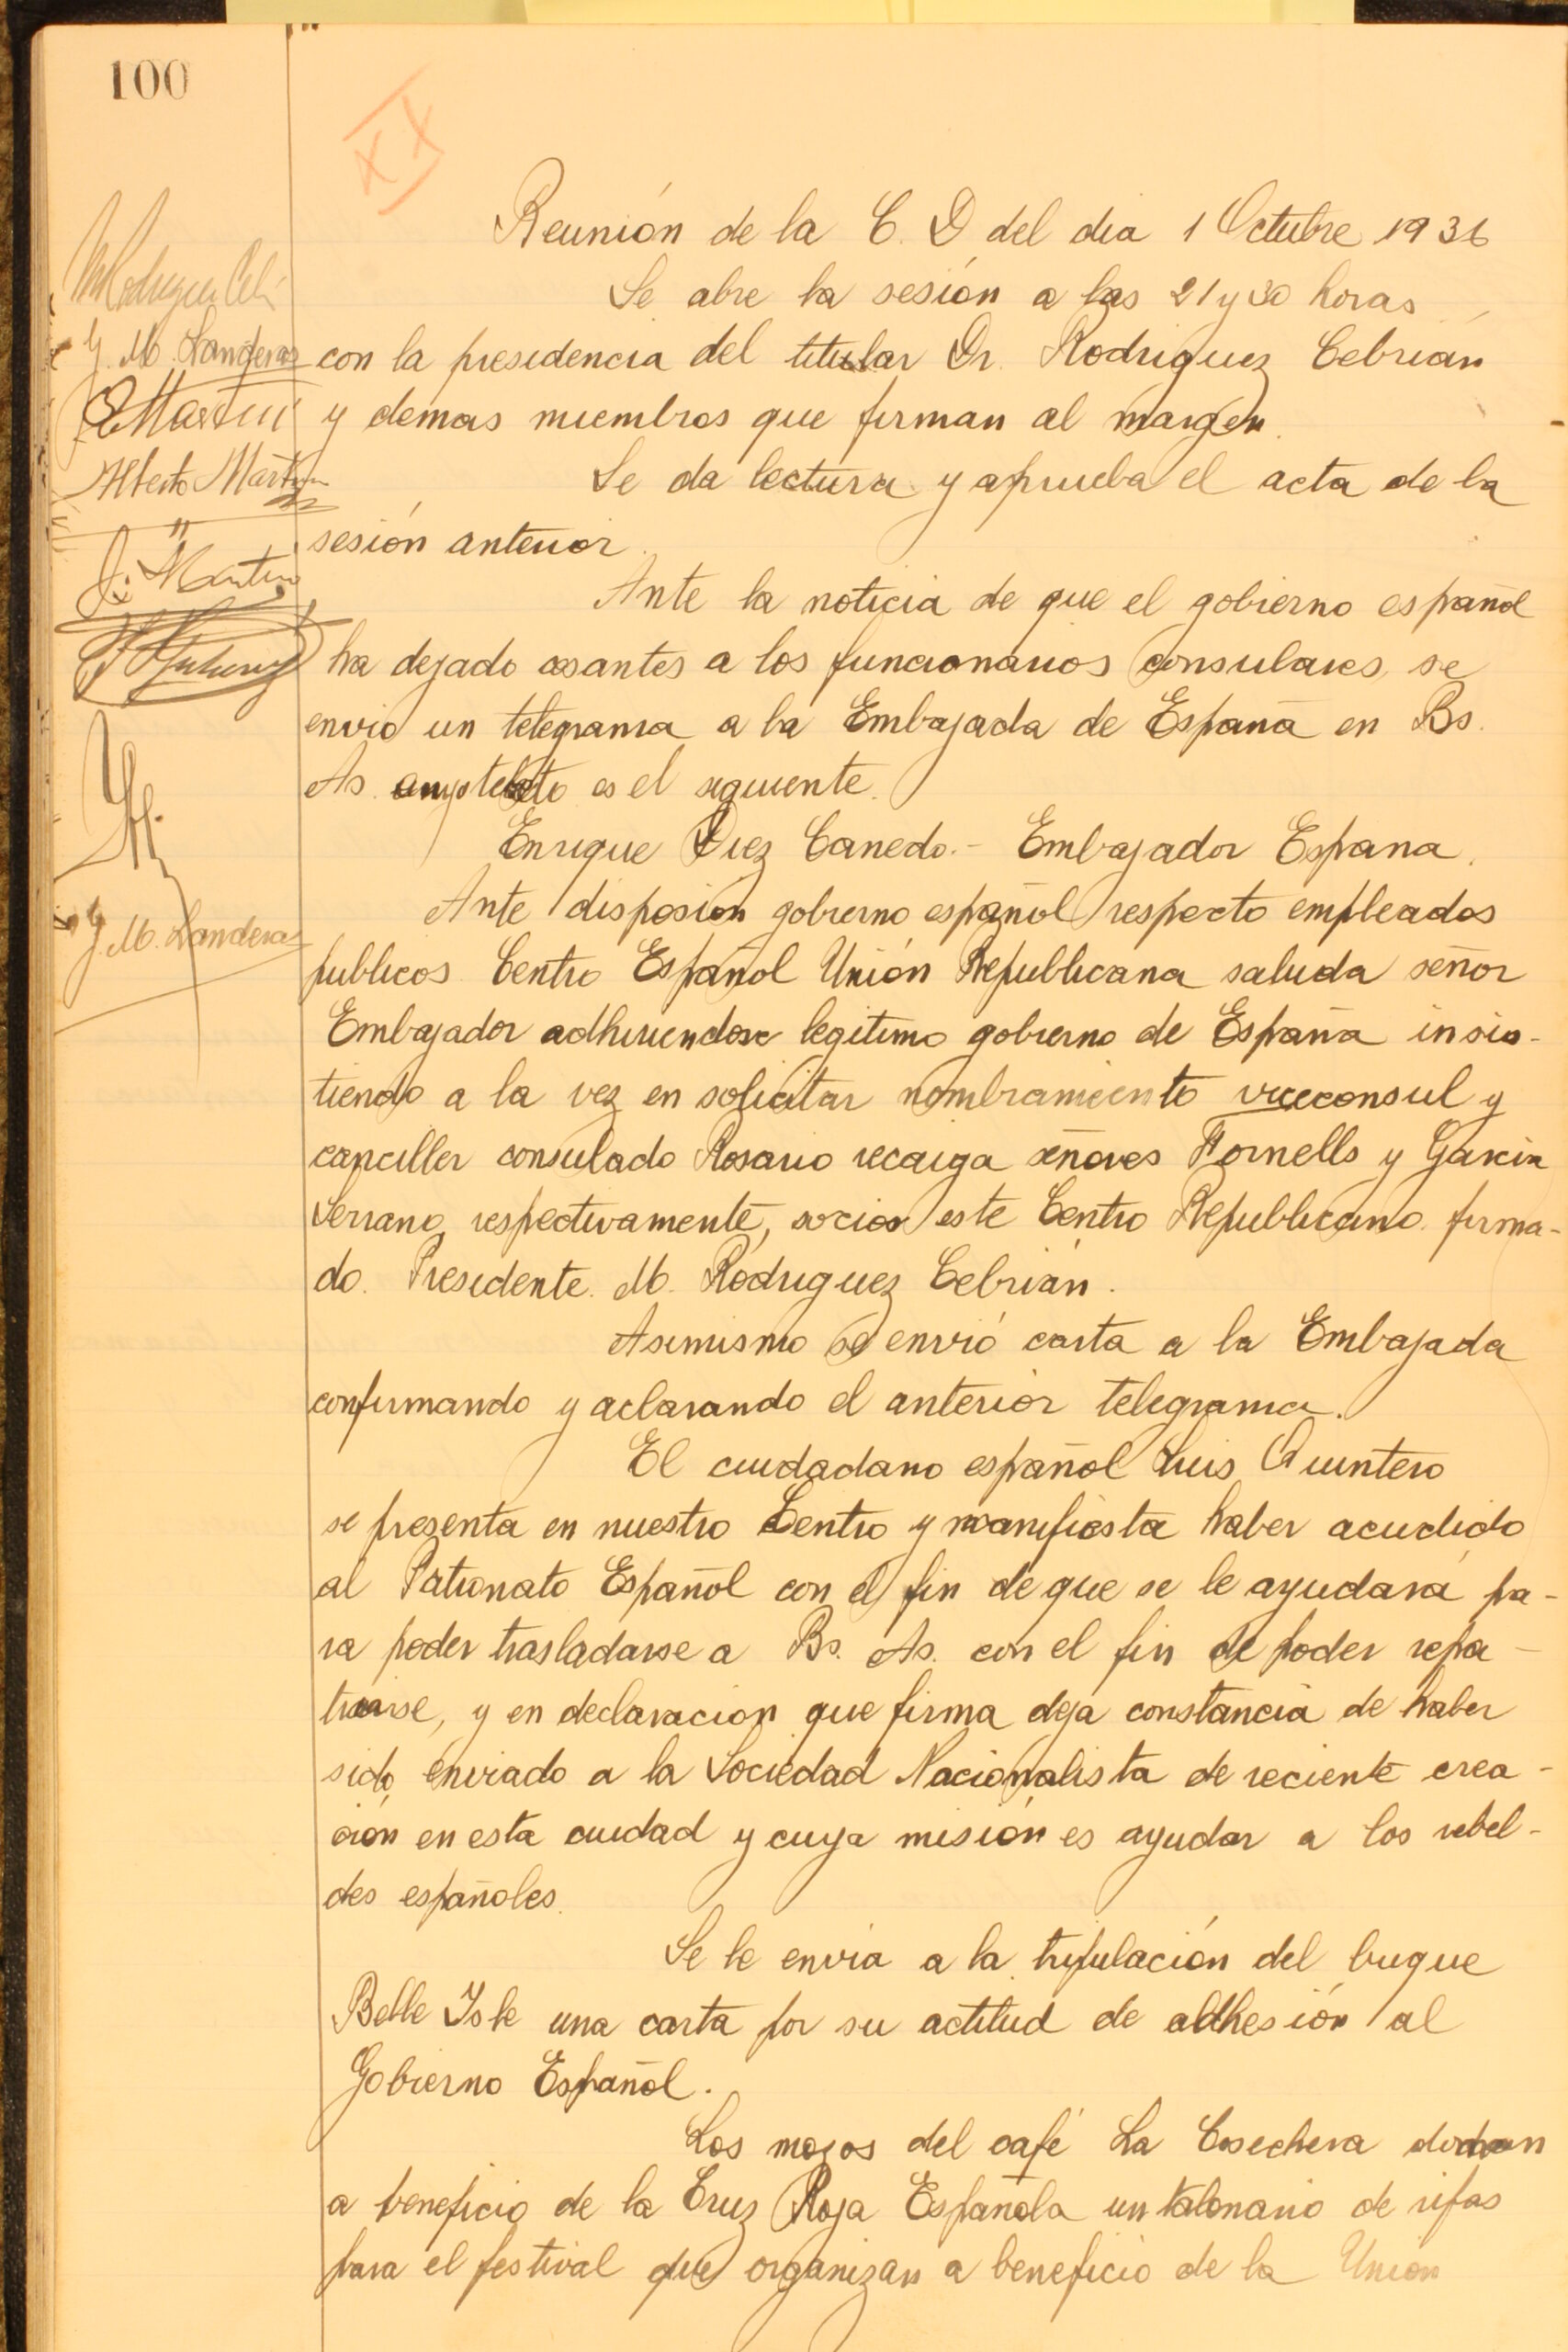 100
XX
Reunión de la C. D del dia 1 Octubre 1936
Se abre la sesión a las 21 y 30 horas
con la presidencia del titular Dr. Rodriguez Cebrián
y demas miembros que firman al margen.
Se da lectura y aprueba el acta de la
sesión anterior.
Ante la noticia de que el gobierno español
ha dejado cesantes a los funcionarios consulares, se
envio un telegrama a la Embajada de España en Bs.
As. cuyo texto es el siguiente.
Enrique Diez Canedo.- Embajador España.
Ante disposion gobierno español respecto empleados
publicos Centro Español Unión Republicana saluda señor
Embajador adhiriendose legitimo gobierno de España insis-
tiendo a la vez en solicitar nombramiento viceconsul y
canciller consulado Rosario recaiga señores Fornells y Garcia
Serrano, respectivamente, socios este Centro Republicano firma-
do. Presidente. M. Rodriguez Cebrián.
Asimismo se envió carta a la Embajada
confirmando y aclarando el anterior telegrama.
El ciudadano español Luis Quintero
se presenta en nuestro Centro y manifiesta haber acudido
al Patronato Español con el fin de que se le ayudará pa-
ra poder trasladarse a Bs. As. con el fin de poder repa-
triarse, y en declaracion que firma deja constancia de haber
sido enviado a la Sociedad Nacionalista de reciente crea-
ción en esta ciudad y cuya misión es ayudar a los rebel-
des españoles.
Se le envia a la tripulación del buque
Belle Isle una carta por su actitud de adhesión al
Gobierno Español.
Los mozos del café La Cosechera donan
a beneficio de la Cruz Roja Española un talonario de rifas
para el festival que organizan a beneficio de la Union
M Rodriguez Ceb
J. M. Landeras
E Martin
Alberto Martin
J. Martin
J. M. Landeras